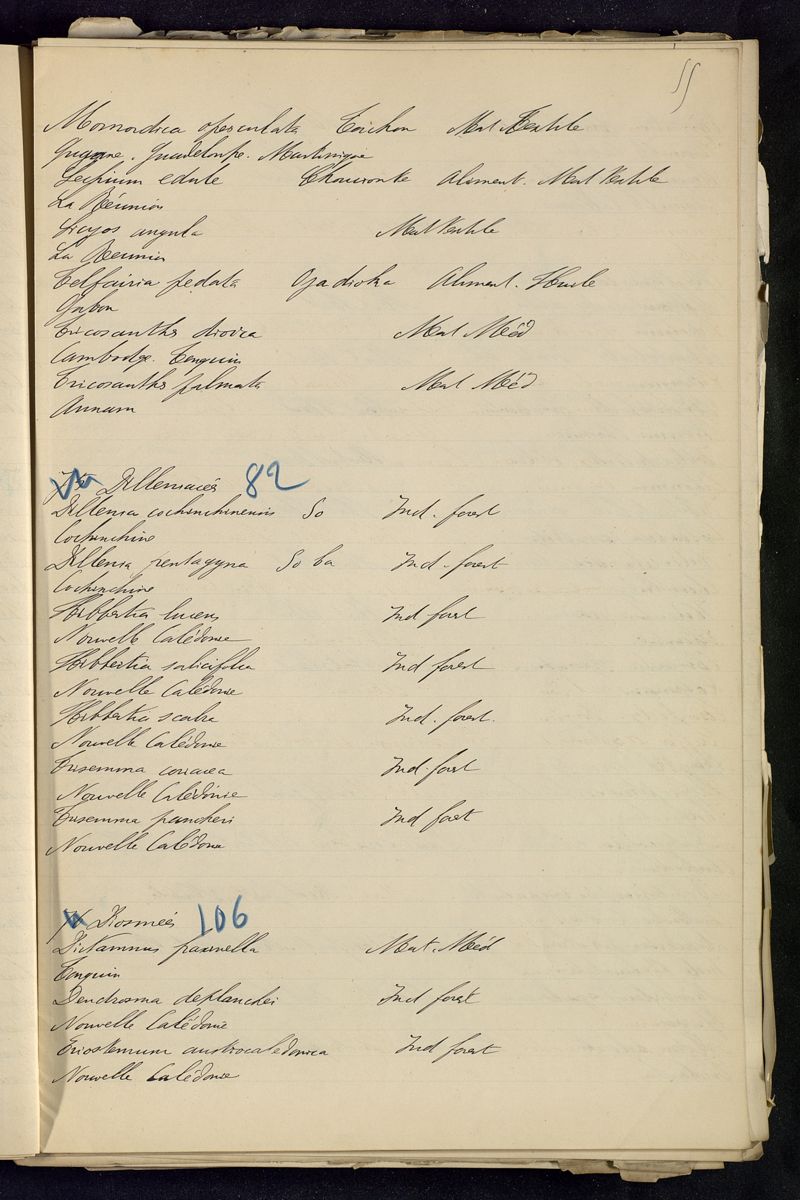 55
Momordica operculata Torchon Mat Textile
Guyane. Guadeloupe. Martinique
Sechium edule Chouchoute Aliment. Mat Textile
La Réunion
Sicyos angula Mat Textile
La Réunion
Telfairia pedata Ojadioka Aliment. Huile
Gabon
Tricosanthes dioica Mat Méd
Cambodge. Tonquin
Tricosanthes palmata Mat Méd
Annam
Dilleniacées 82
Dillenia cochinchinensis So Ind. forest
Cochinchine
Dillenia pentagyna So ba Ind. forest
Cochinchine
Hibbertia lucens Ind forest
Nouvelle Calédonie
Hibbertia salicifolia Ind forest
Nouvelle Calédonie
Hibbertia scabra Ind. forest.
Nouvelle Calédonie
Trisemma coriacea Ind. forest
Nouvelle Calédonie
Trisemma pancheri Ind forest
Nouvelle Calédonie
Diosmées 106
Dictamnus Mat. Méd
Tonquin
Dendrosma deplanchei Ind forest
Nouvelle Calédonie
Eriostemum austrocaledonica Ind forest
Nouvelle Calédonie